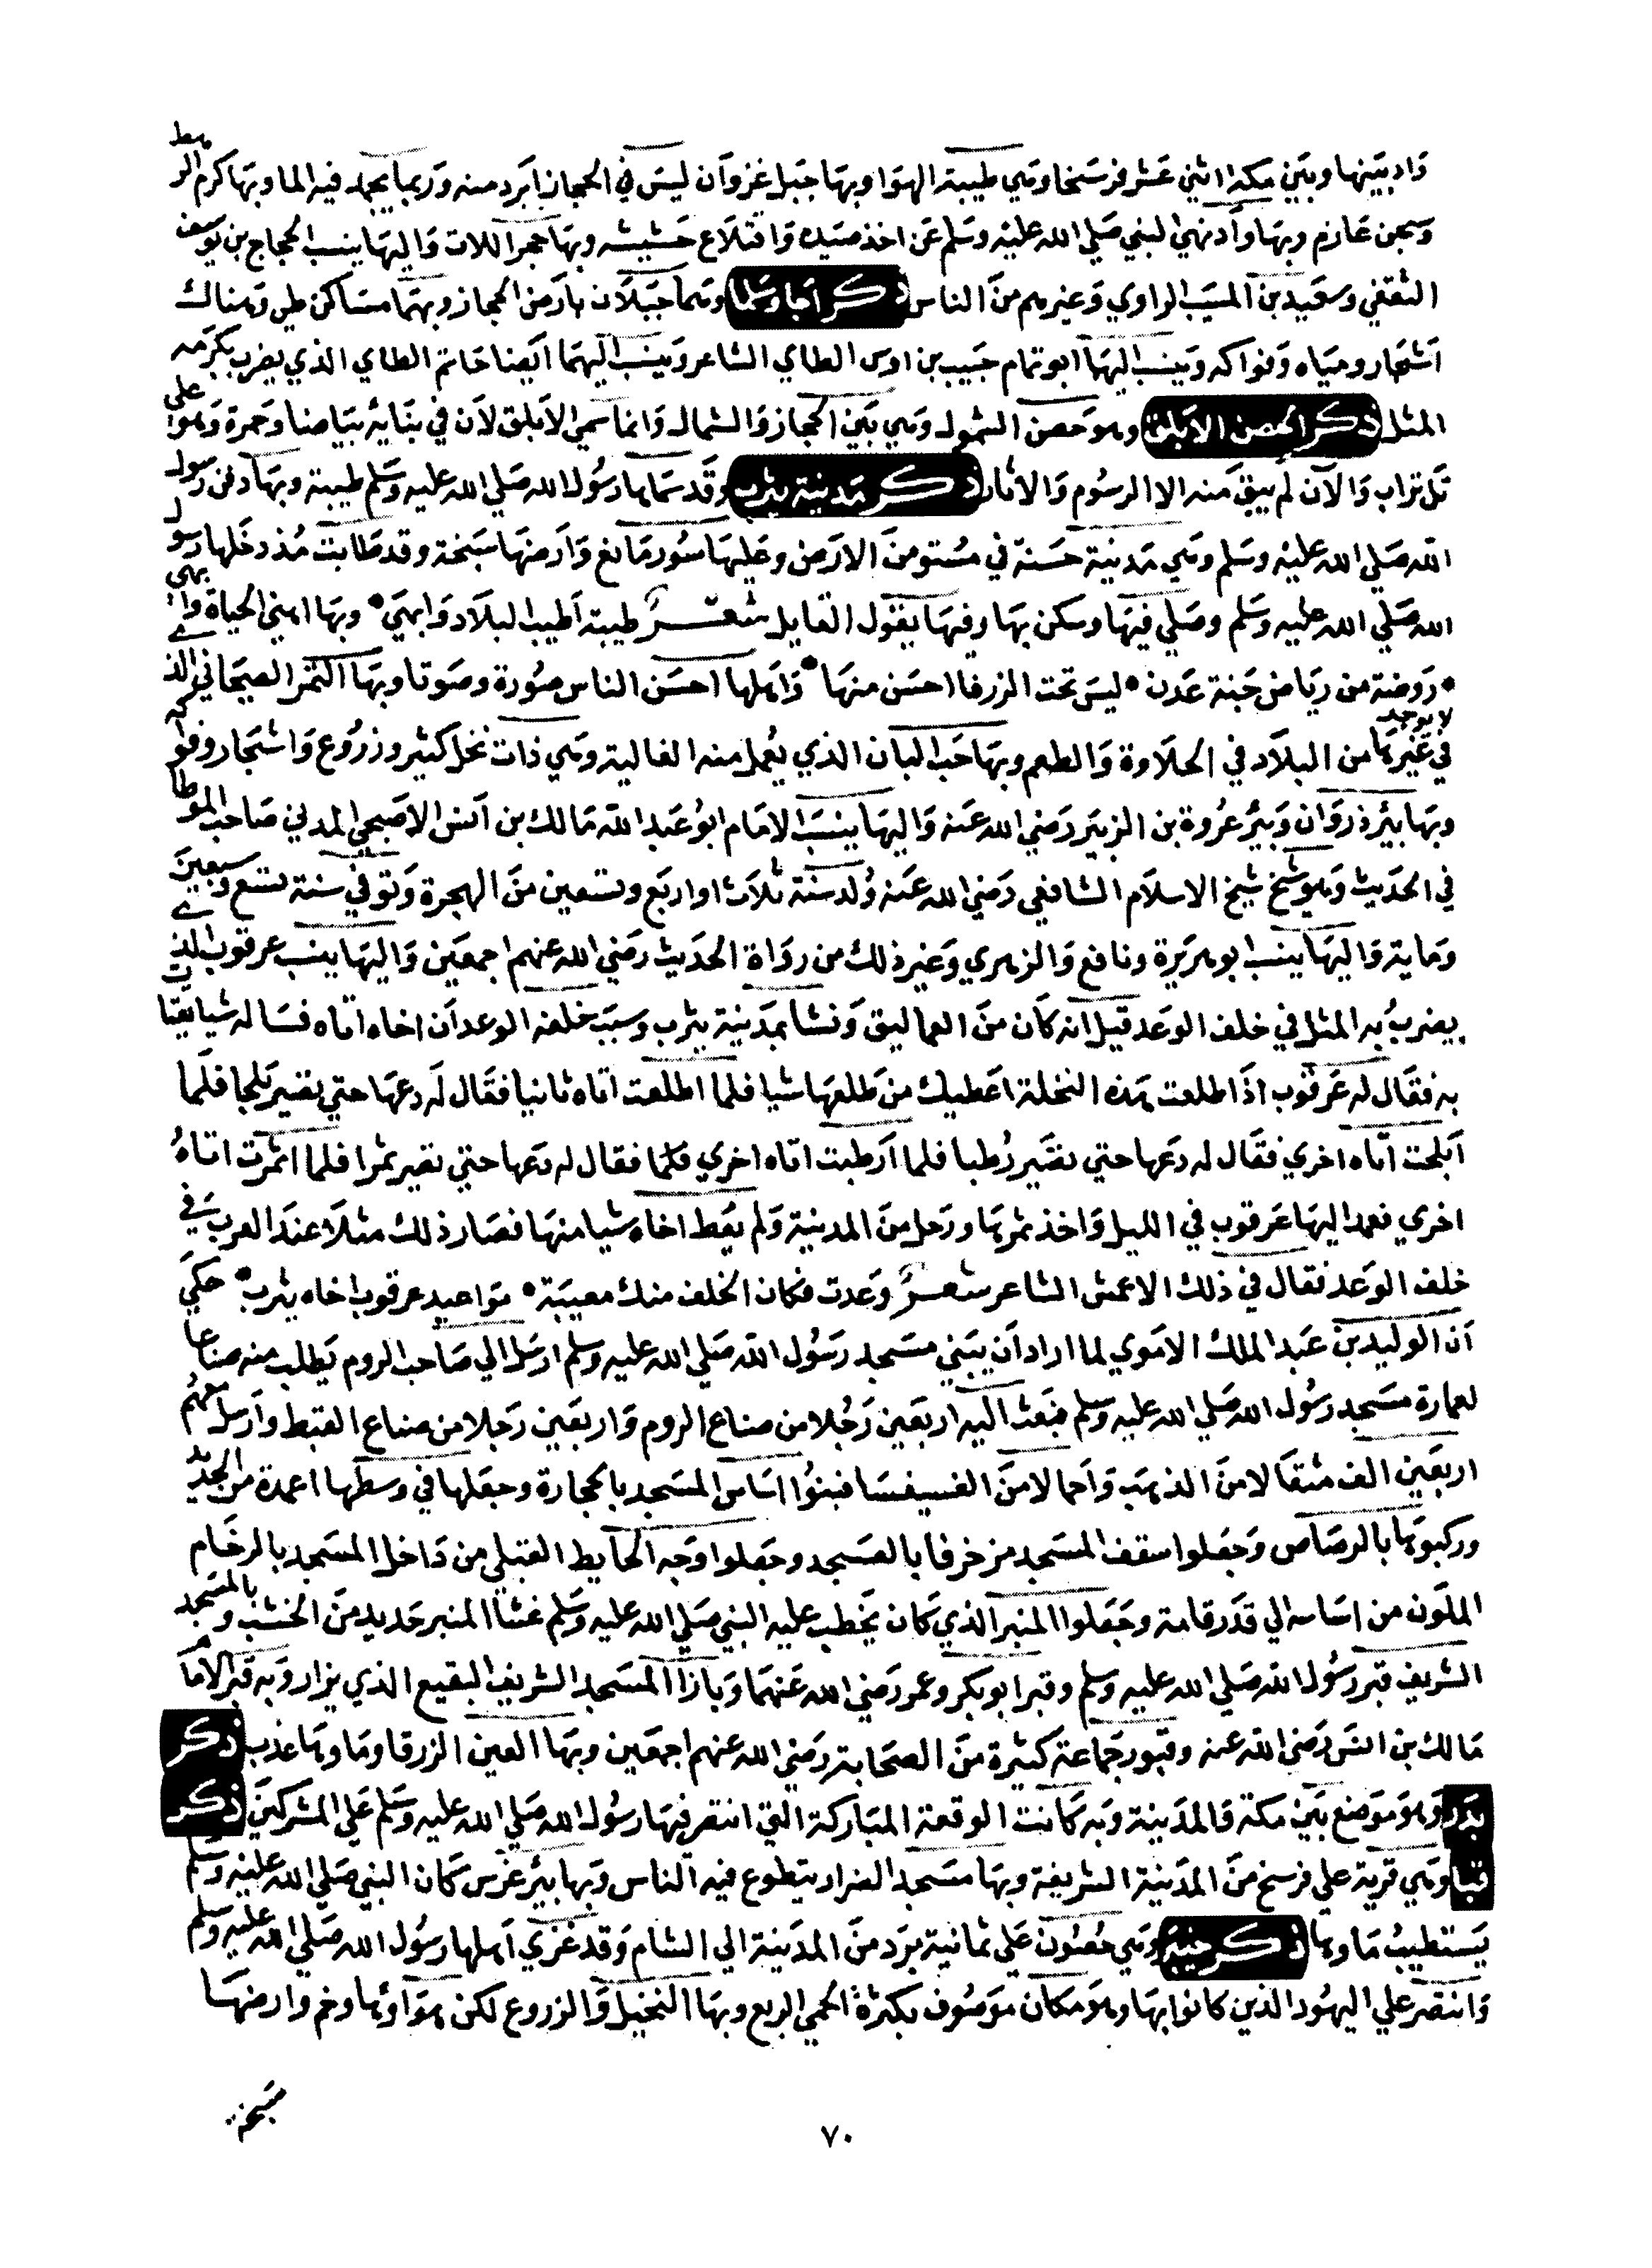 واد بينها وبين مكة اثني عشر فرسخا وهي طيبة الهوا وبها جبل غزوان ليس في الحجاز ابرد منه وربما يجمد فيه الما وبها كرم الرهط
وسجن عازم وبها واد نهي النبي صلي الله عليه وسلم عن اخذ صيده واقتلاع حشيشه وبها حجر اللات واليها ينسب الحجاج بن يوسف
الثقفي وسعيد بن المسيب الراوي وغيرهم من الناس ذكر اجا وسلما وهما جبلان بارض الحجاز وبهما مساكن طي وهناك
اشجار ومياه وفواكه وينسب اليها ابو تمام حبيب بن اوس الطاي الشاعر وينسب اليهما ايضا حاتم الطاي الذي يضرب بكرمه
المثل ذكر الحصن الابلق وهو حصن الشمول وهي بين الحجاز والشمال وانما سمي الابلق لان في بنايه بياضا وحمرة وهو علي
تل تراب والان لم يبق منه الا الرسوم والاثار ذكر مدينة يثرب وقد سماها رسول الله صلي الله عليه وسلم طيبة وبها دفن رسول
الله صلي الله عليه وسلم وهي مدينة حسنة في مستو من الارض وعليها سور مانع وارضها سبخة وقد طابت مذ دخلها رسول
الله صلي الله عليه وسلم وصلي فيها وسكن بها وفيها يقول القايل شعر طيبة اطيب البلاد وابهي • وبها اهني الحياة وابهي
• روضة من رياض جنة عدن • ليس تحت الزرقا احسن منها • واهلها احسن الناس صورة وصوتا وبها التمر الصيحاني الذي
لا يوجد في غيرها من البلاد في الحلاوة والطعم وبها حب البان الذي يعمل منه الغالية وهي ذات نخل كثير وزروع واشجار وفواكه
وبها بير ذروان وبير عروة بن الزبير رضي الله عنه واليها ينسب الامام ابو عبد الله مالك بن انس الاصبحي المدني صاحب الموطا
في الحديث وهو شيخ شيخ الاسلام الشافعي رضي الله عنه ولد سنة ثلاث او اربع وتسعين من الهجرة وتوفي سنة تسع وسبعين
وماية واليها ينسب ابو هريرة ونافع والزهري وغير ذلك من رواة الحديث رضي الله عنهم اجمعين واليها ينسب عرقوب الذي
يضرب به المثل في خلف الوعد قيل انه كان من العماليق ونشا بمدينة يثرب وسبب خلفه الوعد ان اخاه اتاه فساله شيا يقتات
به فقال له عرقوب اذا اطلعت هذه النخلة اعطيك من طلعها شيا فلما اطلعت اتاه ثانيا فقال له دعها حتي تصير بلحا فلما
ابلحت اتاه اخري فقال له دعها حتي تصير رطبا فلما ارطبت اتاه اخري فقال له دعها حتي تصير تمرا فلما اثمرت اتاه
اخري فعمد اليها عرقوب في الليل واخذ تمرها ورحل من المدينة ولم يعط اخاه شيا منها فصار ذلك مثلا عند العرب في
خلف الوعد فقال في ذلك الاعمش الشاعر شعر وعدت فكان الخلف منك معيبة • مواعيد عرقوب اخاه يثرب • حكي
ان الوليد بن عبد الملك الاموي لما اراد ان يبني مسجد رسول الله صلي الله عليه وسلم ارسل الي صاحب الروم يطلب منه صناعا
لعمارة مسجد رسول الله صلي الله عليه وسلم فبعث اليه اربعين رجلا من صناع الروم واربعين رجلا من صناع القبط وارسل معهم
اربعين الف مثقالا من الذهب واحمالا من الفسيفسا فبنوا اساس المسجد بالحجارة وجعلها في وسطها اعمدة من الحديد
وركبوها بالرصاص وجعلوا سقف المسجد مزخرفا بالعسجد وجعلوا وجه الحايط القبلي من داخل المسجد بالرخام
الملون من اساسه الي قدر قامة وجعلوا المنبر الذي كان يخطب عليه النبي صلي الله عليه وسلم غشا المنبر حديد من الخشب وبالمسجد
الشريف قبر رسول الله صلي الله عليه وسلم وقبر ابو بكر وعمر رضي الله عنهما وبازا المسجد الشريف البقيع الذي يزار وبه قبر الامام
مالك بن انس رضي الله عنه وقبور جماعة كثيرة من الصحابة رضي الله عنهم اجمعين وبها العين الزرقا وماوها عذب ذكر
بدر وهو موضع بين مكة والمدينة وبه كانت الوقعة المباركة التي انتصر فيها رسول الله صلي الله عليه وسلم علي المشركين ذكر
قبا وهي قرية علي فرسخ من المدينة الشريفة وبها مسجد الضرار يتطوع فيه الناس وبها بير غرس كان النبي صلي الله عليه وسلم
يستطيب ماوها ذكر خيبر وهي حصون علي ثمانية برد من المدينة الي الشام وقد غزي اهلها رسول الله صلي الله عليه وسلم
وانتصر علي اليهود الذين كانوا بها وهو مكان موصوف بكثرة الحمي الربع وبها النخيل والزروع لكن هواوها وخم وارضها
سبخة
٧٠